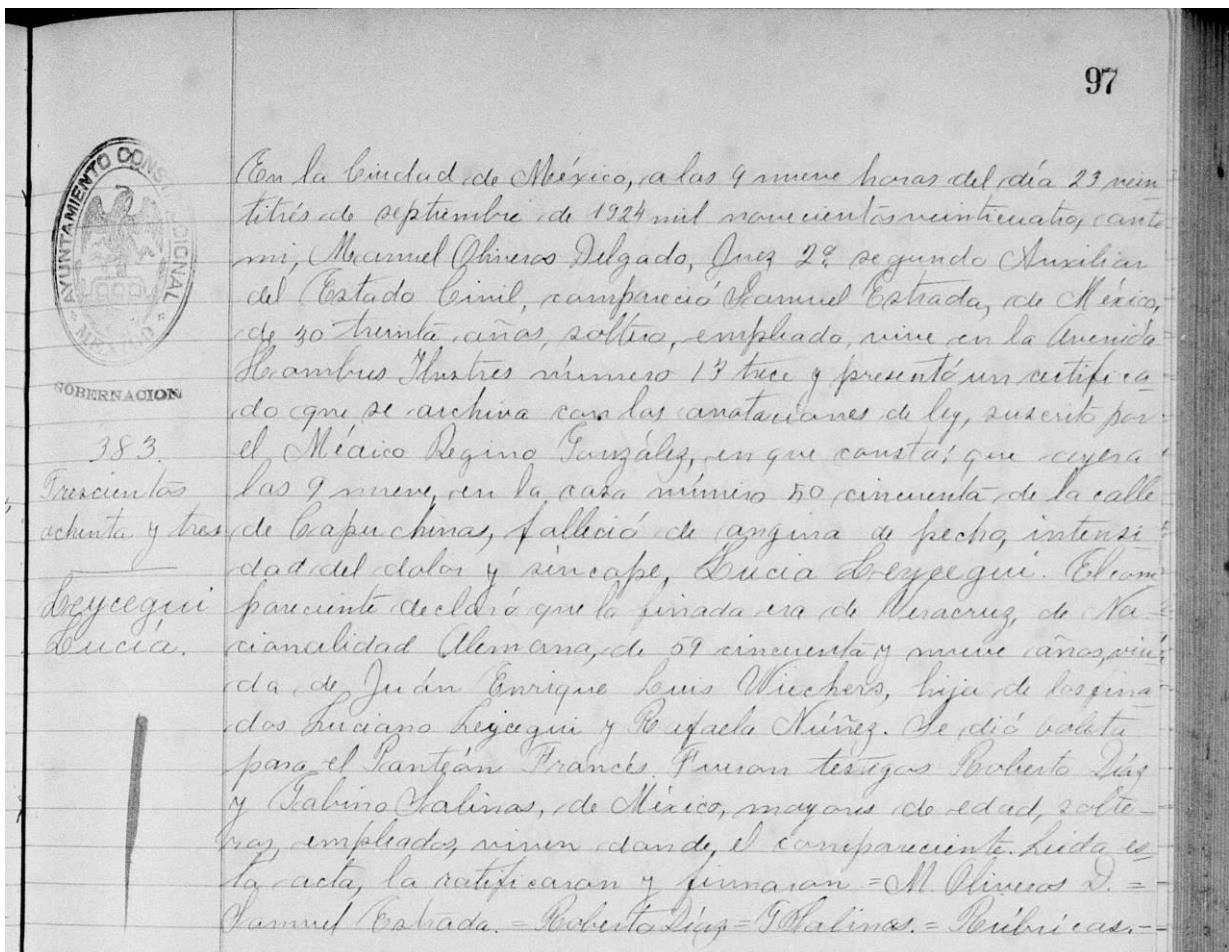 97
AYUNTAMIENTO CONSTITUCIONAL
MEXICO
GOBERNACION
383.
Trescientos
ochenta y tres
Leycegui
Lucía.
En la Ciudad de México, a las 9 nueve horas del día 23 vein
titrés de septiembre de 1924 mil novecientos veinticuatro, ante
mi, Manuel Oliveros Delgado, Juez 2º segundo Auxiliar
del Estado Civil, compareció Samuel Estrada, de México,
de 30 treinta años, soltero, empleado, vive en la Avenida
Hombres Ilustres número 13 trece y presentó un certifica
do que se archiva con las anotaciones de ley, suscrito por
el Médico Regino González, en que consta: que ayer a
las 9 nueve, en la casa número 50 cincuenta de la calle
de Capuchinas, falleció de angina de pecho, intensi
dad del dolor y síncope, Lucia Leycegui. El com
pareciente declaró que la finada era de Veracruz, de Na-
cionalidad Alemana, de 59 cincuenta y nueve años, viu
da de Juán Enrique Luis Wiechers, hija de los fina
dos Luciano Leycegui y Rafaela Núñez. Se dió boleta
para el Panteón Francés. Fueron testigos Roberto Díaz
y Gabino Salinas, de México, mayores de edad, solte-
ros, empleados, viven donde el compareciente. Leida es
ta acta, la ratificaron y firmaron = M. Oliveros D. =
Samuel Estrada. = Roberto Díaz = G Salinas. = Rúbricas. -